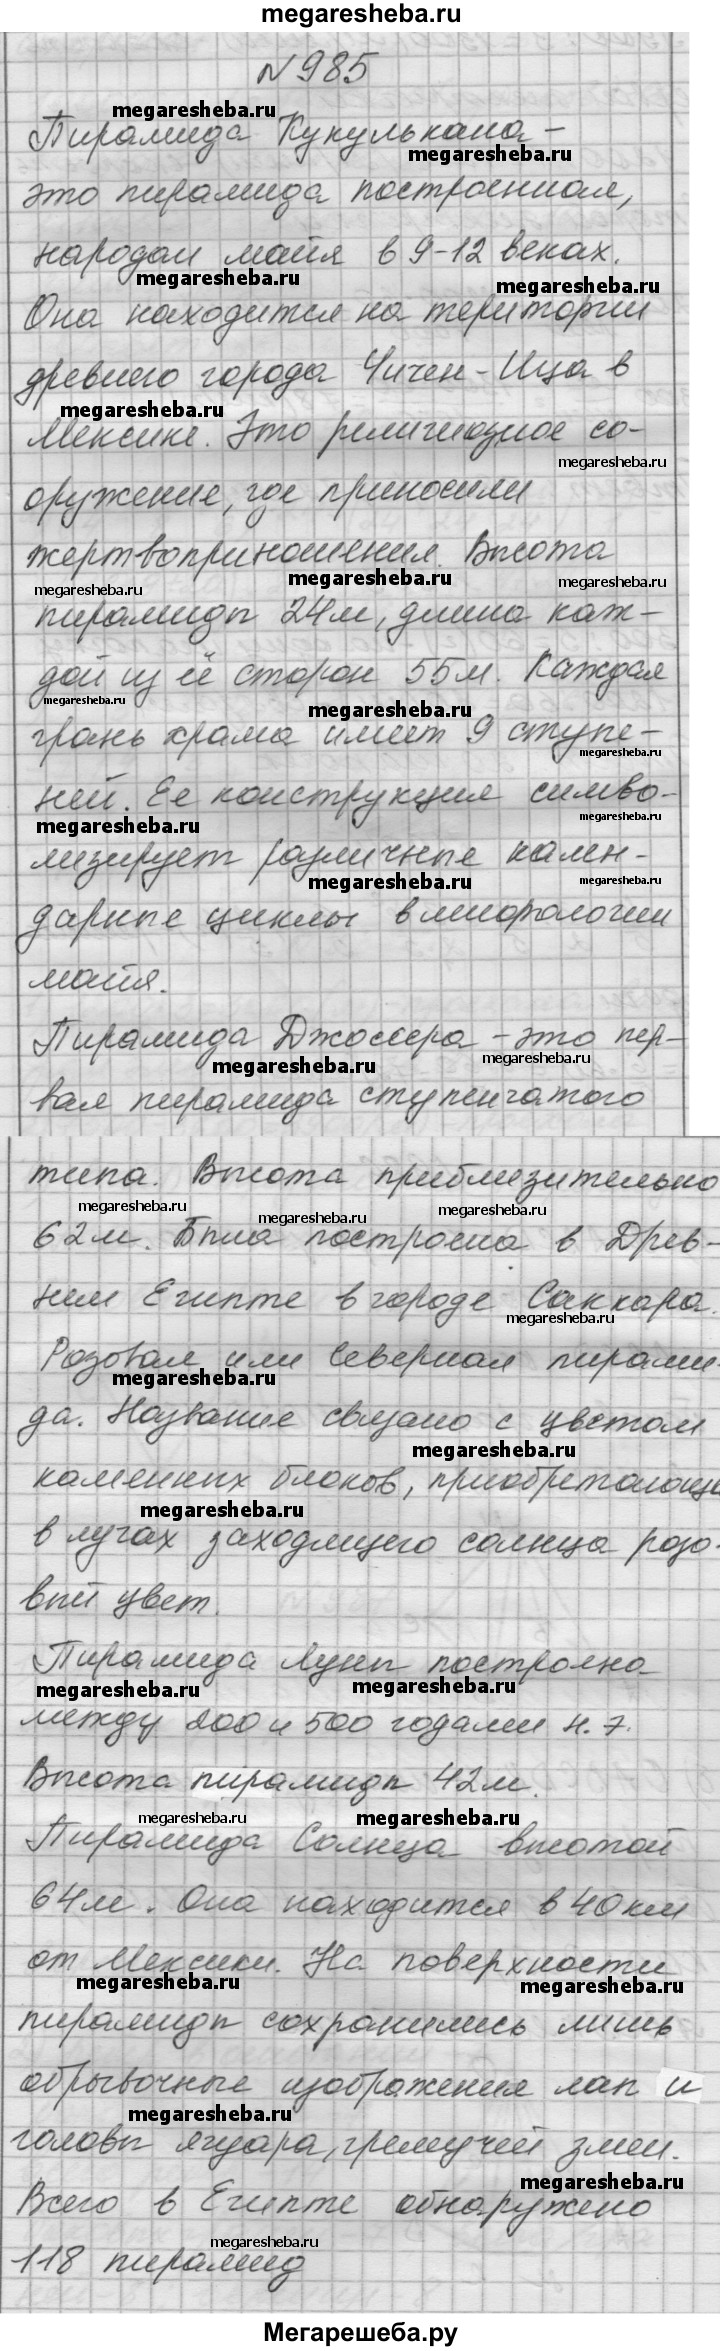 megaresheba.ru
N 985
Пирамида Кукулькана –
это пирамида построенная,
народом майя в 9-12 веках.
Она находится на територии
древнего города Чичен-Ица в
Мексике. Это религиозное со-
оружение, где приносили
жертвоприношения. Высота
пирамиды 24м, длина каж-
дой из её сторон 55м. Каждая
грань храма имеет 9 ступе-
ней. Ее конструкция симво-
лизирует различные кален-
дарные циклы в мифологии
майя.
Пирамида Джоссера – это пер-
вая пирамида ступенчатого
типа. Высота приблизительно
62м. Была построена в Древ-
нем Египте в городе Саккара.
Розовая или Северная пирами-
да. Название связано с цветом
каменных блоков, приобретающи
в лучах заходящего солнца розо-
вый цвет.
Пирамида Луны построена
между 200 и 500 годами н.э.
Высота пирамиды 42м.
Пирамида Солнца высотой
64м. Она находится в 40км
от Мексики. На поверхности
пирамиды сохранились лишь
обрывочные изображения лап и
головы ягуара, гремучей змеи.
Всего в Египте обнаружено
118 пирамид
Мегарешеба.ру